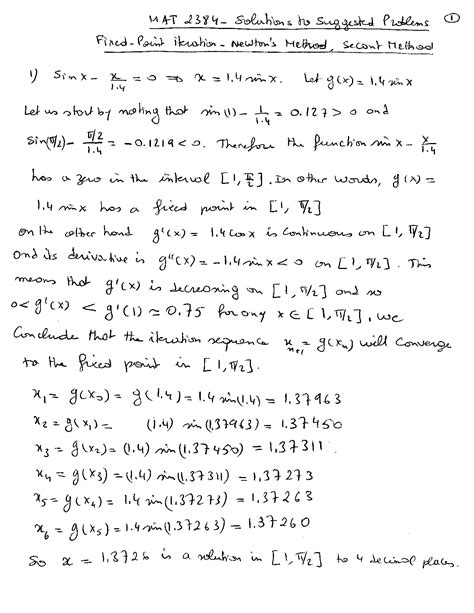 MAT 2384 - Solutions to Suggested Problems ①
Fixed-Point iteration - Newton's Method, Secant Method
1) Sin x - x/1.4 = 0 ⇒ x = 1.4 sin x. Let g(x) = 1.4 sin x
Let us start by noting that sin(1) - 1/1.4 = 0.127 > 0 and
Sin(π/2) - (π/2)/1.4 = -0.1219 < 0. Therefore the function sin x - x/1.4
has a zero in the interval [1, π/2]. In other words, g(x) =
1.4 sin x has a fixed point in [1, π/2]
on the other hand g'(x) = 1.4 cos x is continuous on [1, π/2]
and its derivative is g''(x) = -1.4 sin x < 0 on [1, π/2]. This
means that g'(x) is decreasing on [1, π/2] and so
0 < g'(x) < g'(1) ≃ 0.75 for any x ∈ [1, π/2]. We
Conclude that the iteration sequence x_{n+1} = g(x_n) will converge
to the fixed point in [1, π/2].
x₁ = g(x₀) = g(1.4) = 1.4 sin(1.4) = 1.37963
x₂ = g(x₁) = (1.4) sin(1.37963) = 1.37450
x₃ = g(x₂) = (1.4) sin(1.37450) = 1.37311
x₄ = g(x₃) = (1.4) sin(1.37311) = 1.37273
x₅ = g(x₄) = 1.4 sin(1.37273) = 1.37263
x₆ = g(x₅) = 1.4 sin(1.37263) = 1.37260
So x = 1.3726 is a solution in [1, π/2] to 4 decimal places.